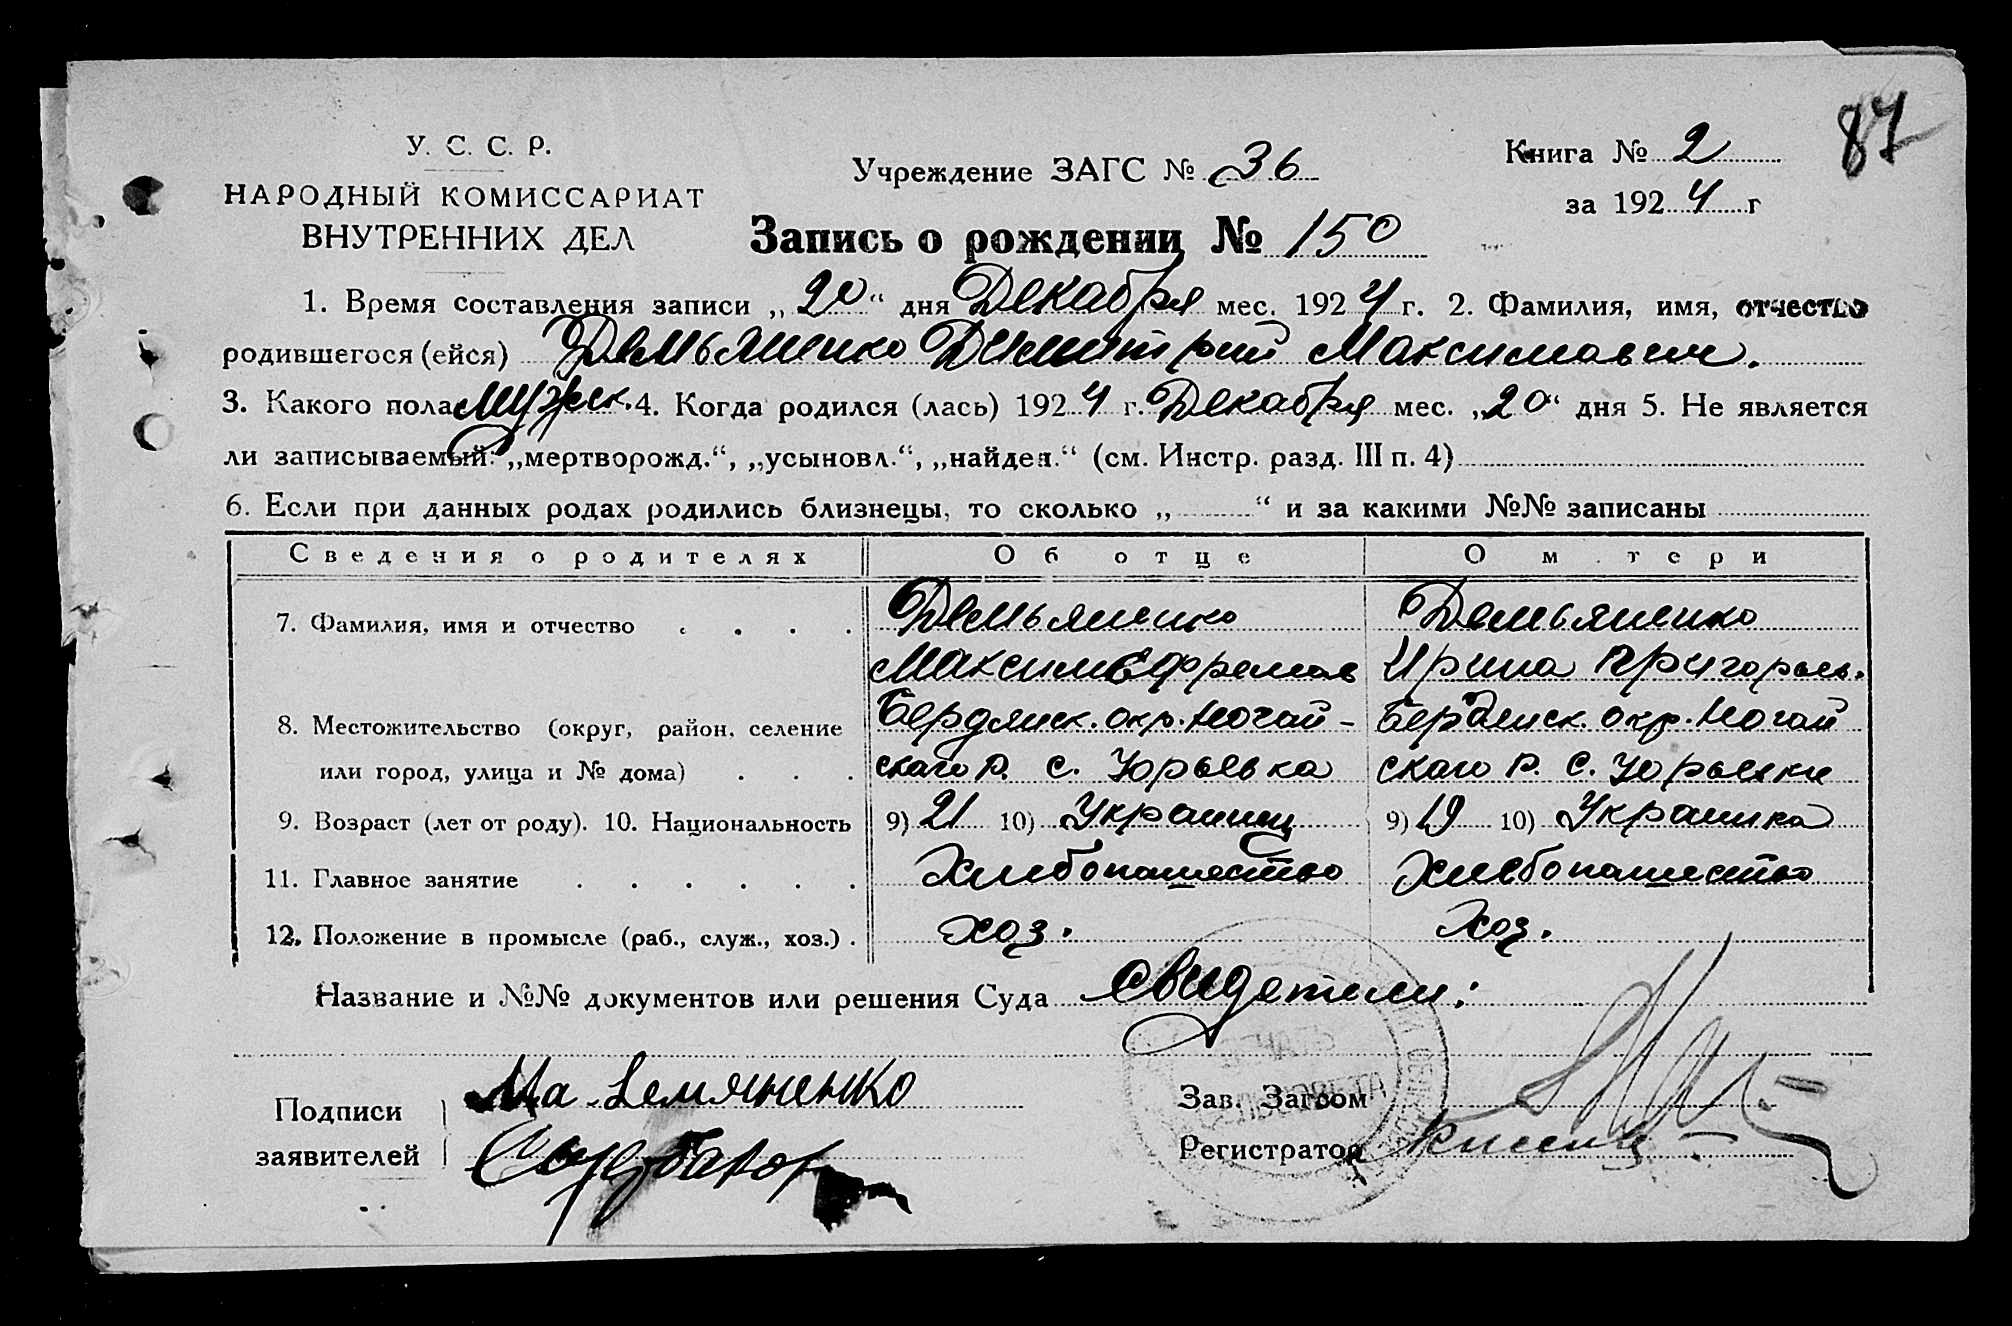 87
У. С. С. Р.
НАРОДНЫЙ КОМИССАРИАТ
ВНУТРЕННИХ ДЕЛ
Учреждение ЗАГС № 36
Книга № 2
за 1924 г
Запись о рождении № 150
1. Время составления записи „20“ дня Декабря мес. 1924 г. 2. Фамилия, имя, отчество
родившегося (ейся) Демьяненко Димитрий Максимович.
3. Какого пола мужск. 4. Когда родился (лась) 1924 г. Декабря мес. „20“ дня 5. Не является
ли записываемый: „мертворожд.“, „усыновл.“, „найден.“ (см. Инстр. разд. III п. 4)
6. Если при данных родах родились близнецы, то сколько „ “ и за какими №№ записаны
Сведения о родителях Об отце О м тери
7. Фамилия, имя и отчество . . . . Демьяненко Демьяненко
Максим Ефремов Ирина Григорьев.
8. Местожительство (округ, район, селение Бердянск. окр. Ногай- Бердянск. окр. Ногай
или город, улица и № дома) . . . скаго р. с. Юрьевка скаго р. с. Юрьевки
9. Возраст (лет от роду). 10. Национальность 9) 21 10) Украинец 9) 19 10) Украинка
11. Главное занятие . . . . . . Хлебопашество Хлебопашество
12. Положение в промысле (раб., служ., хоз.) . хоз. Хоз.
Название и №№ документов или решения Суда свидетели:
Подписи Ма Демяненко Зав. Загсом
заявителей Регистратор